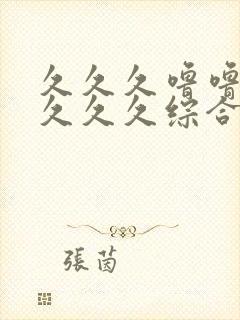 久久久噜噜
久久久综合
張茵